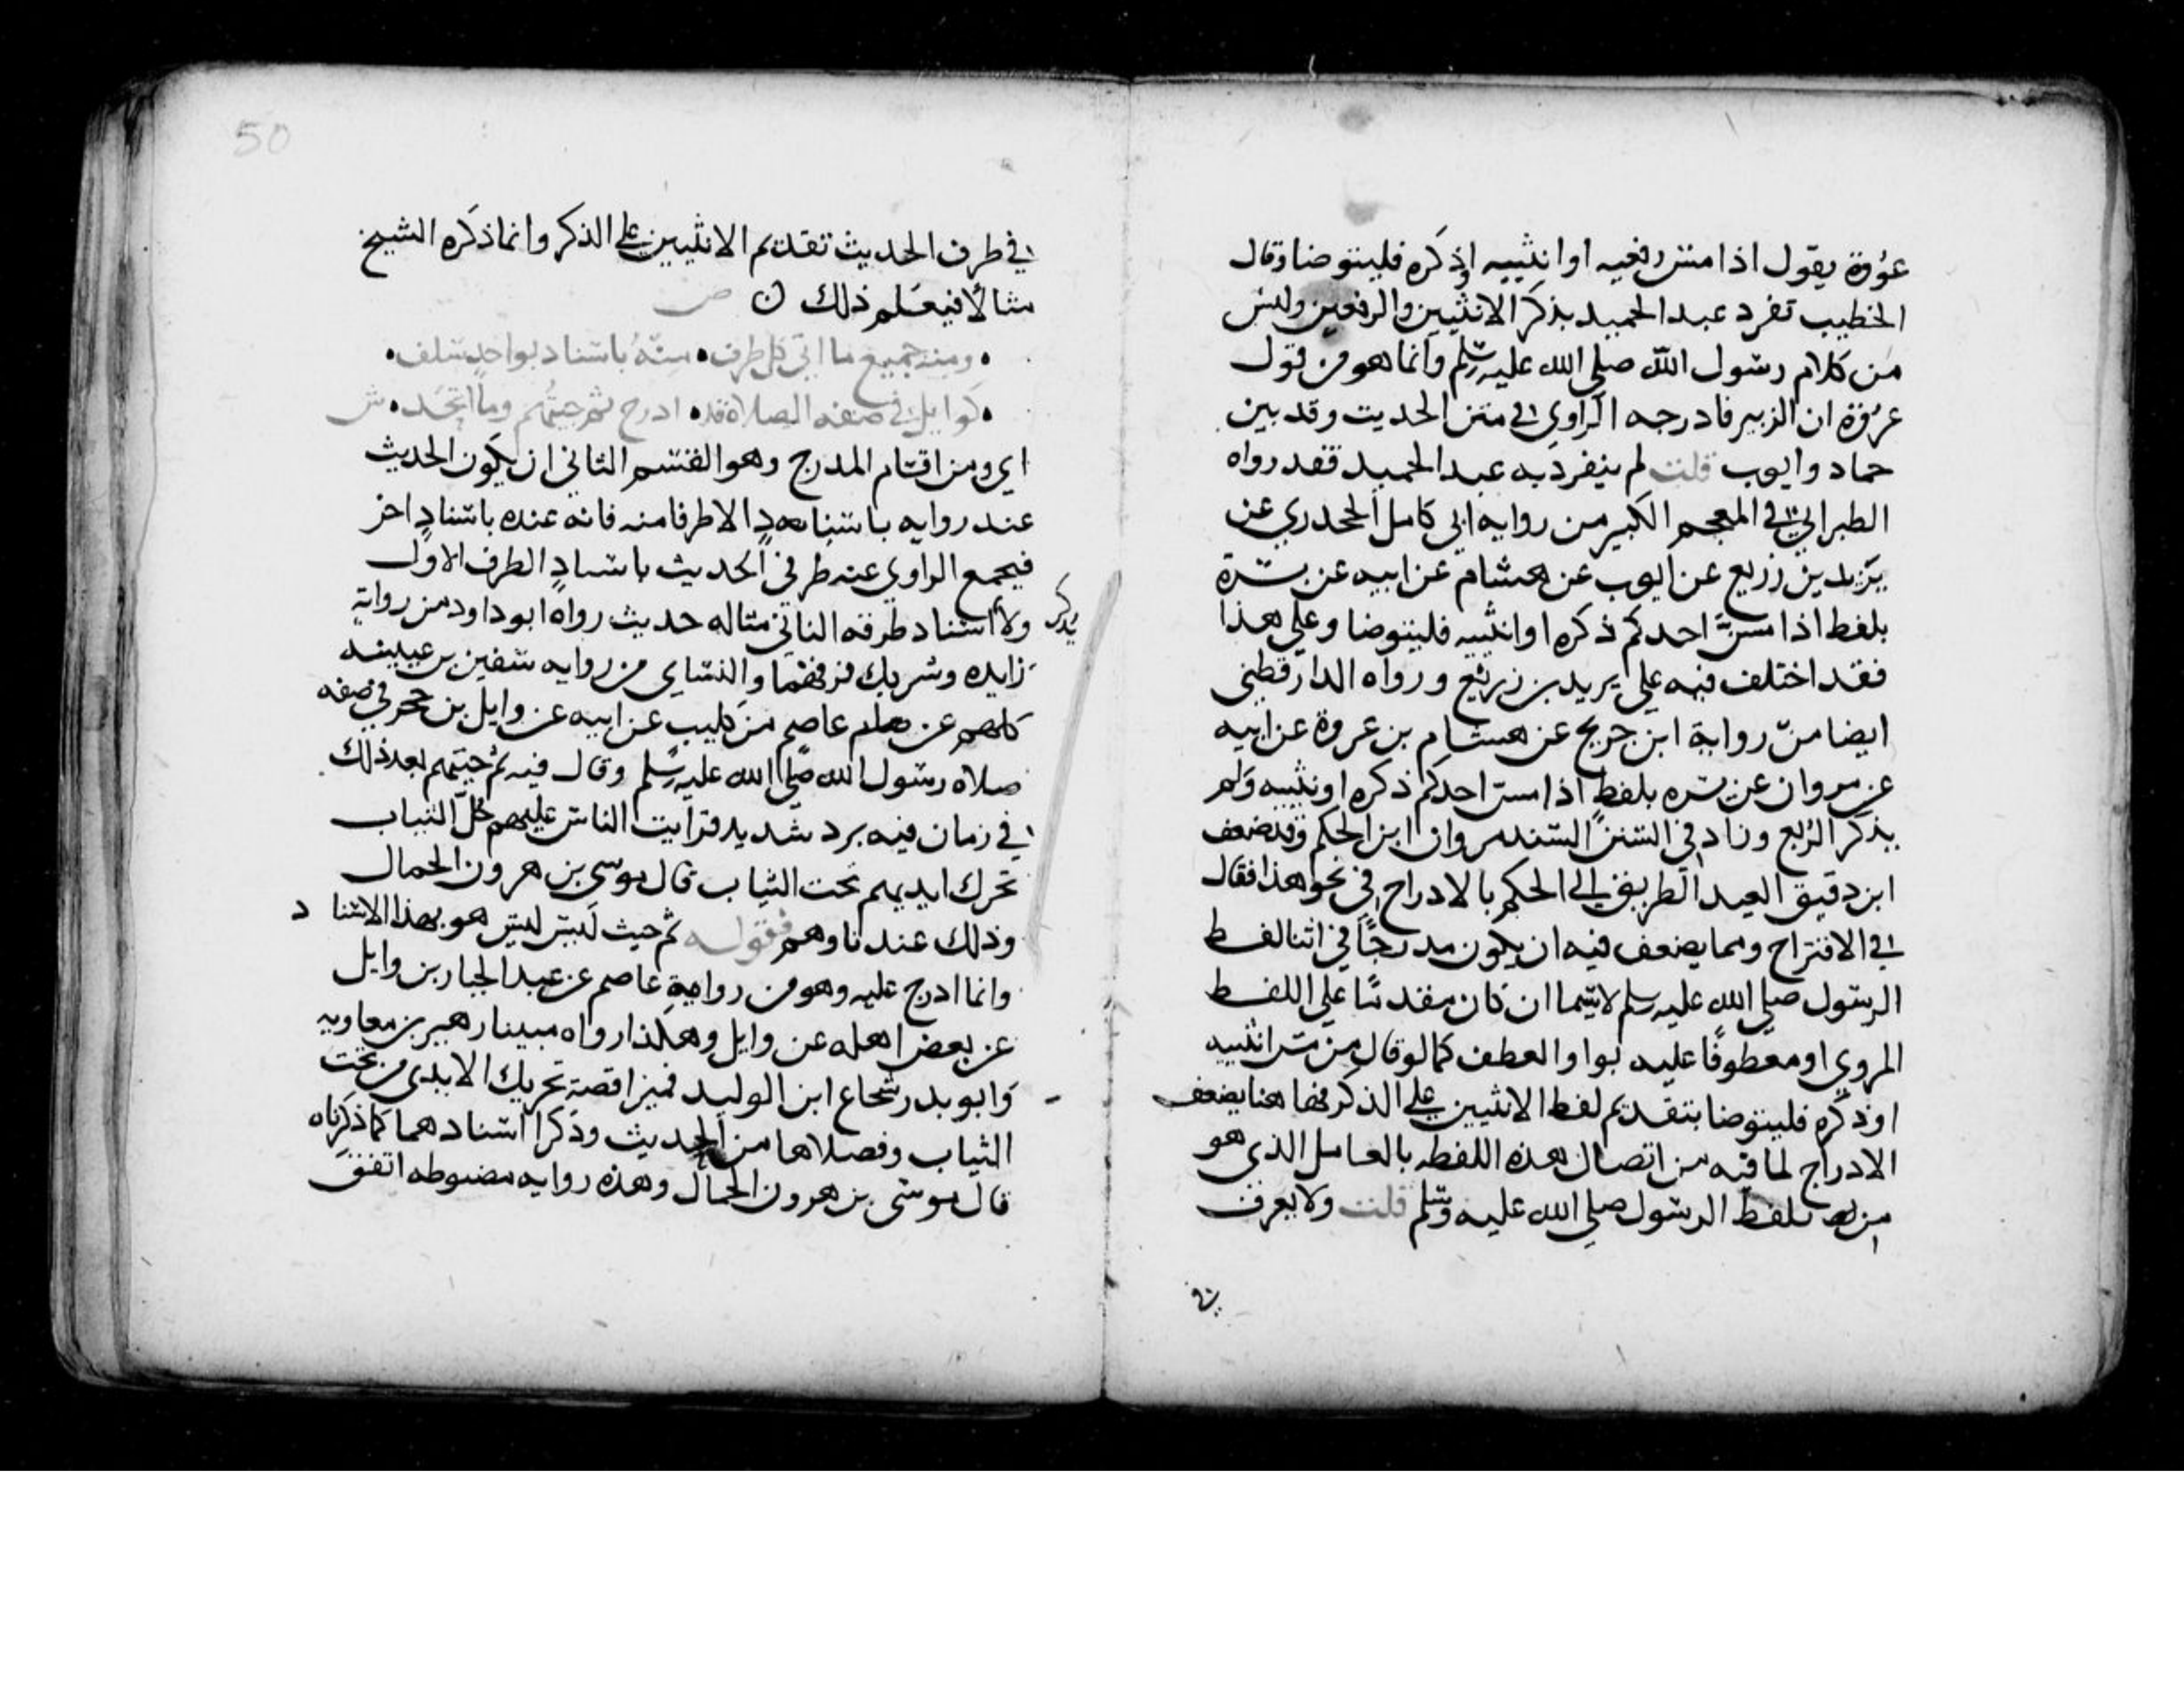 عروة يقول اذا مس رفغيه او انثييه او ذكره فليتوضا وقال
الخطيب تفرد عبد الحميد بذكر الانثيين والرفغين وليس
من كلام رسول الله صلى الله عليه وسلم وانما هو من قول
عروة ان الزبير فادرجه الراوي في متن الحديث وقد بين
حماد وايوب قلت لم ينفرد به عبد الحميد فقد رواه
الطبراني في المعجم الكبير من رواية ابي كامل الجحدري عن
يزيد بن زريع عن ايوب عن هشام عن ابيه عن بسرة
بلفظ اذا مس احدكم ذكره او انثييه فليتوضا وعلى هذا
فقد اختلف فيه على يزيد بن زريع ورواه الدارقطني
ايضا من رواية ابن جريج عن هشام بن عروة عن ابيه
عن مروان عن بسره بلفظ اذا مس احدكم ذكره او نثييه ولم
يذكر الرفع وزاد في السنن السند مروان ابن الحكم وقد ضعف
ابن دقيق العيد الطريق الى الحكم بالادراج في نحو هذا فقال
في الاقتراح ومما يضعف فيه ان يكون مدرجا في اثنا لفظ
الرسول صلى الله عليه وسلم لاسيما ان كان مقدما على اللفظ
المروي او معطوفا عليه بواو العطف كما لو قال من مس انثييه
او ذكره فليتوضا بتقديم لفظ الانثيين على الذكر فها هنا يضعف
الادراج لما فيه من اتصال هذه اللفظه بالعامل الذي هو
من لفظ الرسول صلى الله عليه وسلم قلت ولا يعرف
في
50
في طرف الحديث تقديم الانثيين على الذكر وانما ذكره الشيخ
مثالا فيعلم ذلك ن ص
ومنه جميع ما اتى كل طرف • منه باسناد بواحد سلف •
• كوايل في صفه الصلاة قد • ادرج ثم جيتهم وما اتحد • ش
اي ومن اقسام المدرج وهو القسم الثاني ان يكون الحديث
عند روايه باسناد الا طرفا منه فانه عنده باسناد اخر
فيجمع الراوي عنه طرفي الحديث باسناد الطرف الاول
ولا يذكر اسناد طرفه الثاني مثاله حديث رواه ابو داود من رواية
زايده وشريك فرقهما والنساي من روايه سفين بن عيينه
كلهم عن عاصم بن كليب عن ابيه عن وايل بن حجر في صفه
صلاه رسول الله صلى الله عليه وسلم وقال فيه ثم جيتهم بعد ذلك
في زمان فيه برد شديد فرايت الناس عليهم جل الثياب
تحرك ايديهم تحت الثياب قال موسى بن هرون الحمال
وذلك عندنا وهم فقوله ثم جيت ليس ليس هو بهذا الاسناد
وانما ادرج عليه وهو من رواية عاصم عن عبد الجبار بن وايل
عن بعض اهله عن وايل وهكذا رواه مبينا زهير بن معاويه
وابو بدر شجاع ابن الوليد فميزا قصة تحريك الايدي من تحت
الثياب وفصلاها من الحديث وذكرا اسنادهما كما ذكرناه
قال موسى بن هرون الحمال وهذه روايه مضبوطه اتفق